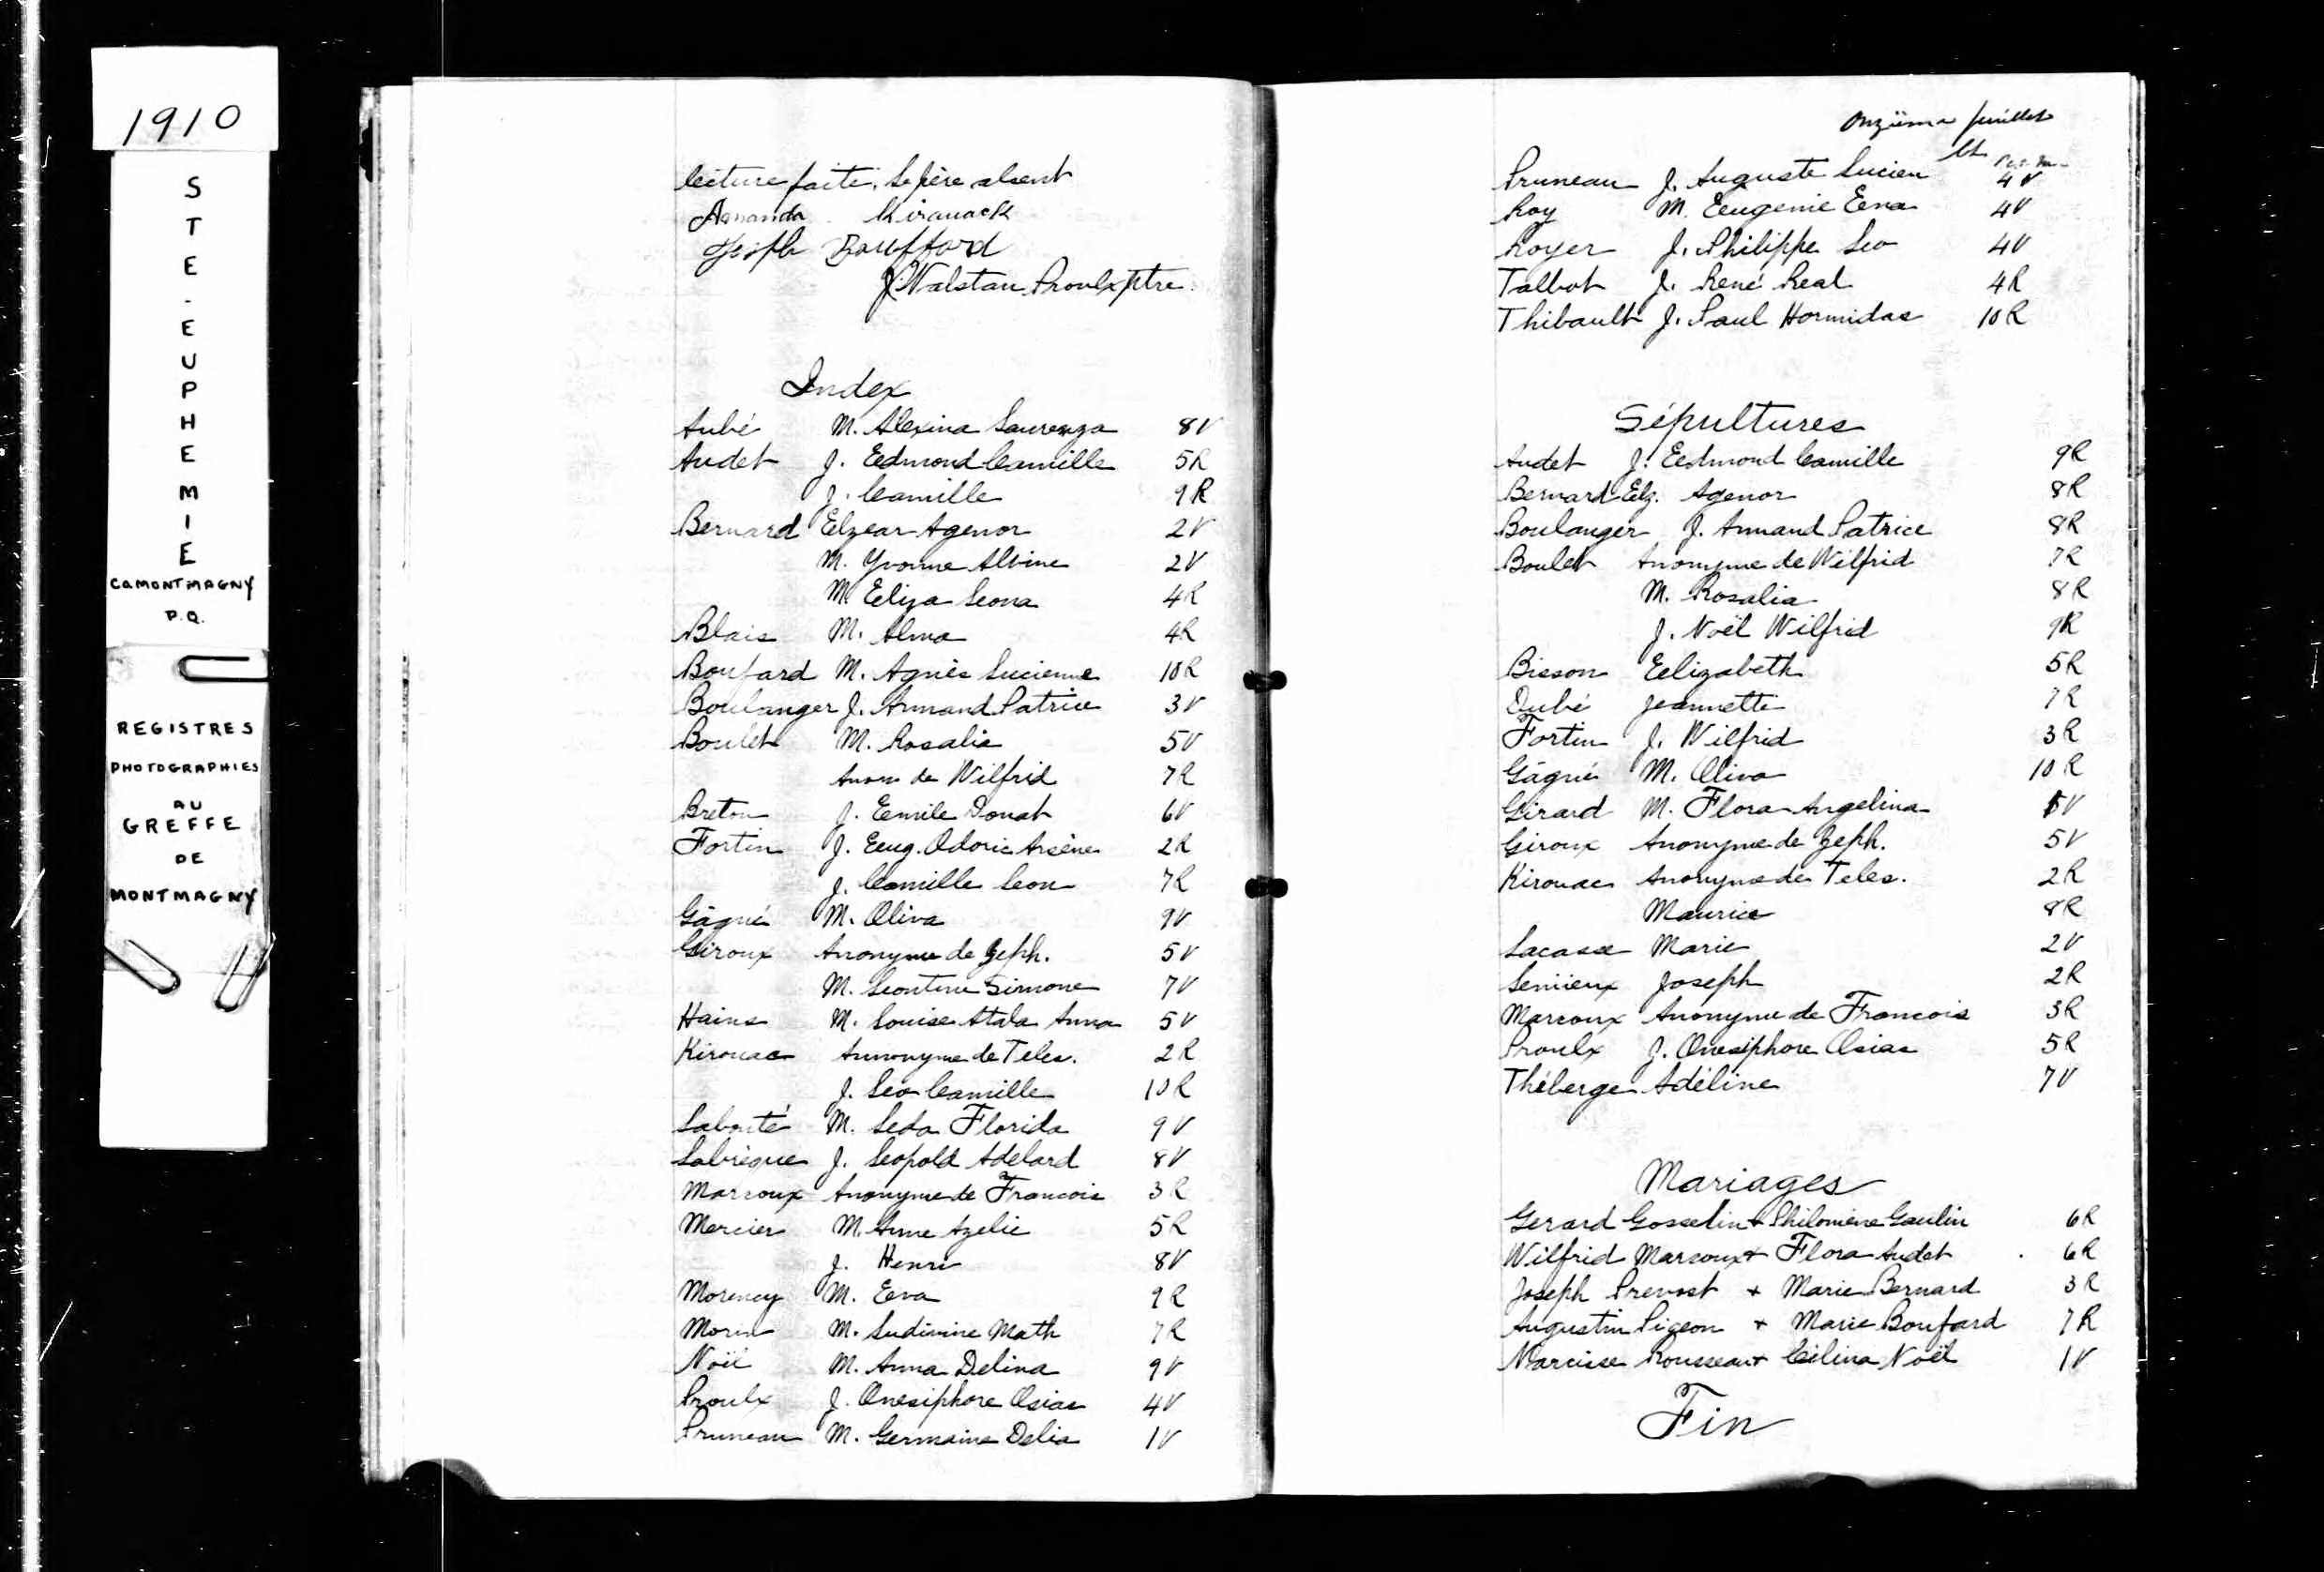 1910
STE-EUPHEMIE
Co MONTMAGNY
P.Q.
REGISTRES
PHOTOGRAPHIES
AU
GREFFE
DE
MONTMAGNY
lecture faite. Le père absent
Amanda Kirouack
Joseph Boufford
J. Walstan Proulx ptre.
Index
Aubé M. Alexina Laurenza 8V
Audet J. Edmond Camille 5R
J. Camille 9R
Bernard Elzear Agenor 2V
M. Yvonne Albine 2V
M. Eliza Leona 4R
Blais M. Alma 4R
Boufard M. Agnès Lucienne 10R
Boulanger J. Armand Patrice 3V
Boulet M. Rosalia 5V
Anom de Wilfrid 7R
Breton J. Emile Donat 6V
Fortin J. Eug. Odoric Arsène 2R
J. Camille Leon 7R
Gâgné M. Oliva 9V
Giroux Anonyme de Zeph. 5V
M. Leontine Simone 7V
Hains M. Louise Atala Anna 5V
Kirouac Annonyme de Teles. 2R
J. Léo Camille 10R
Labonté M. Leda Florida 9V
Labrèque J. Leopold Adelard 8V
Marcoux Anonyme de Francois 3R
Mercier M. Anne Azelie 5R
J. Henri 8V
Morency M. Eva 9R
Morin M. Ludivine Math 7R
Noël M. Anna Delina 9V
Proulx J. Onesiphore Osias 4V
Pruneau M. Germaine Delia 1V
Onzième feuillet
Pruneau J. Auguste Lucien 4V
Roy M. Eugenie Eva 4V
Royer J. Philippe Leo 4V
Talbot J. René Real 4R
Thibault J. Paul Hormidas 10R
Sépultures
Audet J. Edmond Camille 9R
Bernard Elz. Agenor 8R
Boulanger J. Armand Patrice 8R
Boulet Anonyme de Wilfrid 7R
M. Rosalia 8R
J. Noël Wilfrid 9R
Bisson Elizabeth 5R
Dubé Jeannette 7R
Fortin J. Wilfrid 3R
Gâgné M. Oliva 10R
Girard M. Flora Angelina V
Giroux Anonyme de Zeph. 5V
Kirouac Anonyme de Teles. 2R
Maurice 8R
Lacasse Marie 2V
Lemieux Joseph 2R
Marcoux Anonyme de Francois 3R
Proulx J. Onesiphore Osias 5R
Théberge Adéline 7V
Mariages
Gerard Gosselin + Philomène Gaulin 6R
Wilfrid Marcoux + Flora Audet 6R
Joseph Prevost + Marie Bernard 3R
Augustin Pigeon + Marie Boufard 7R
Narcisse Rousseau + Célina Noël 1V
Fin